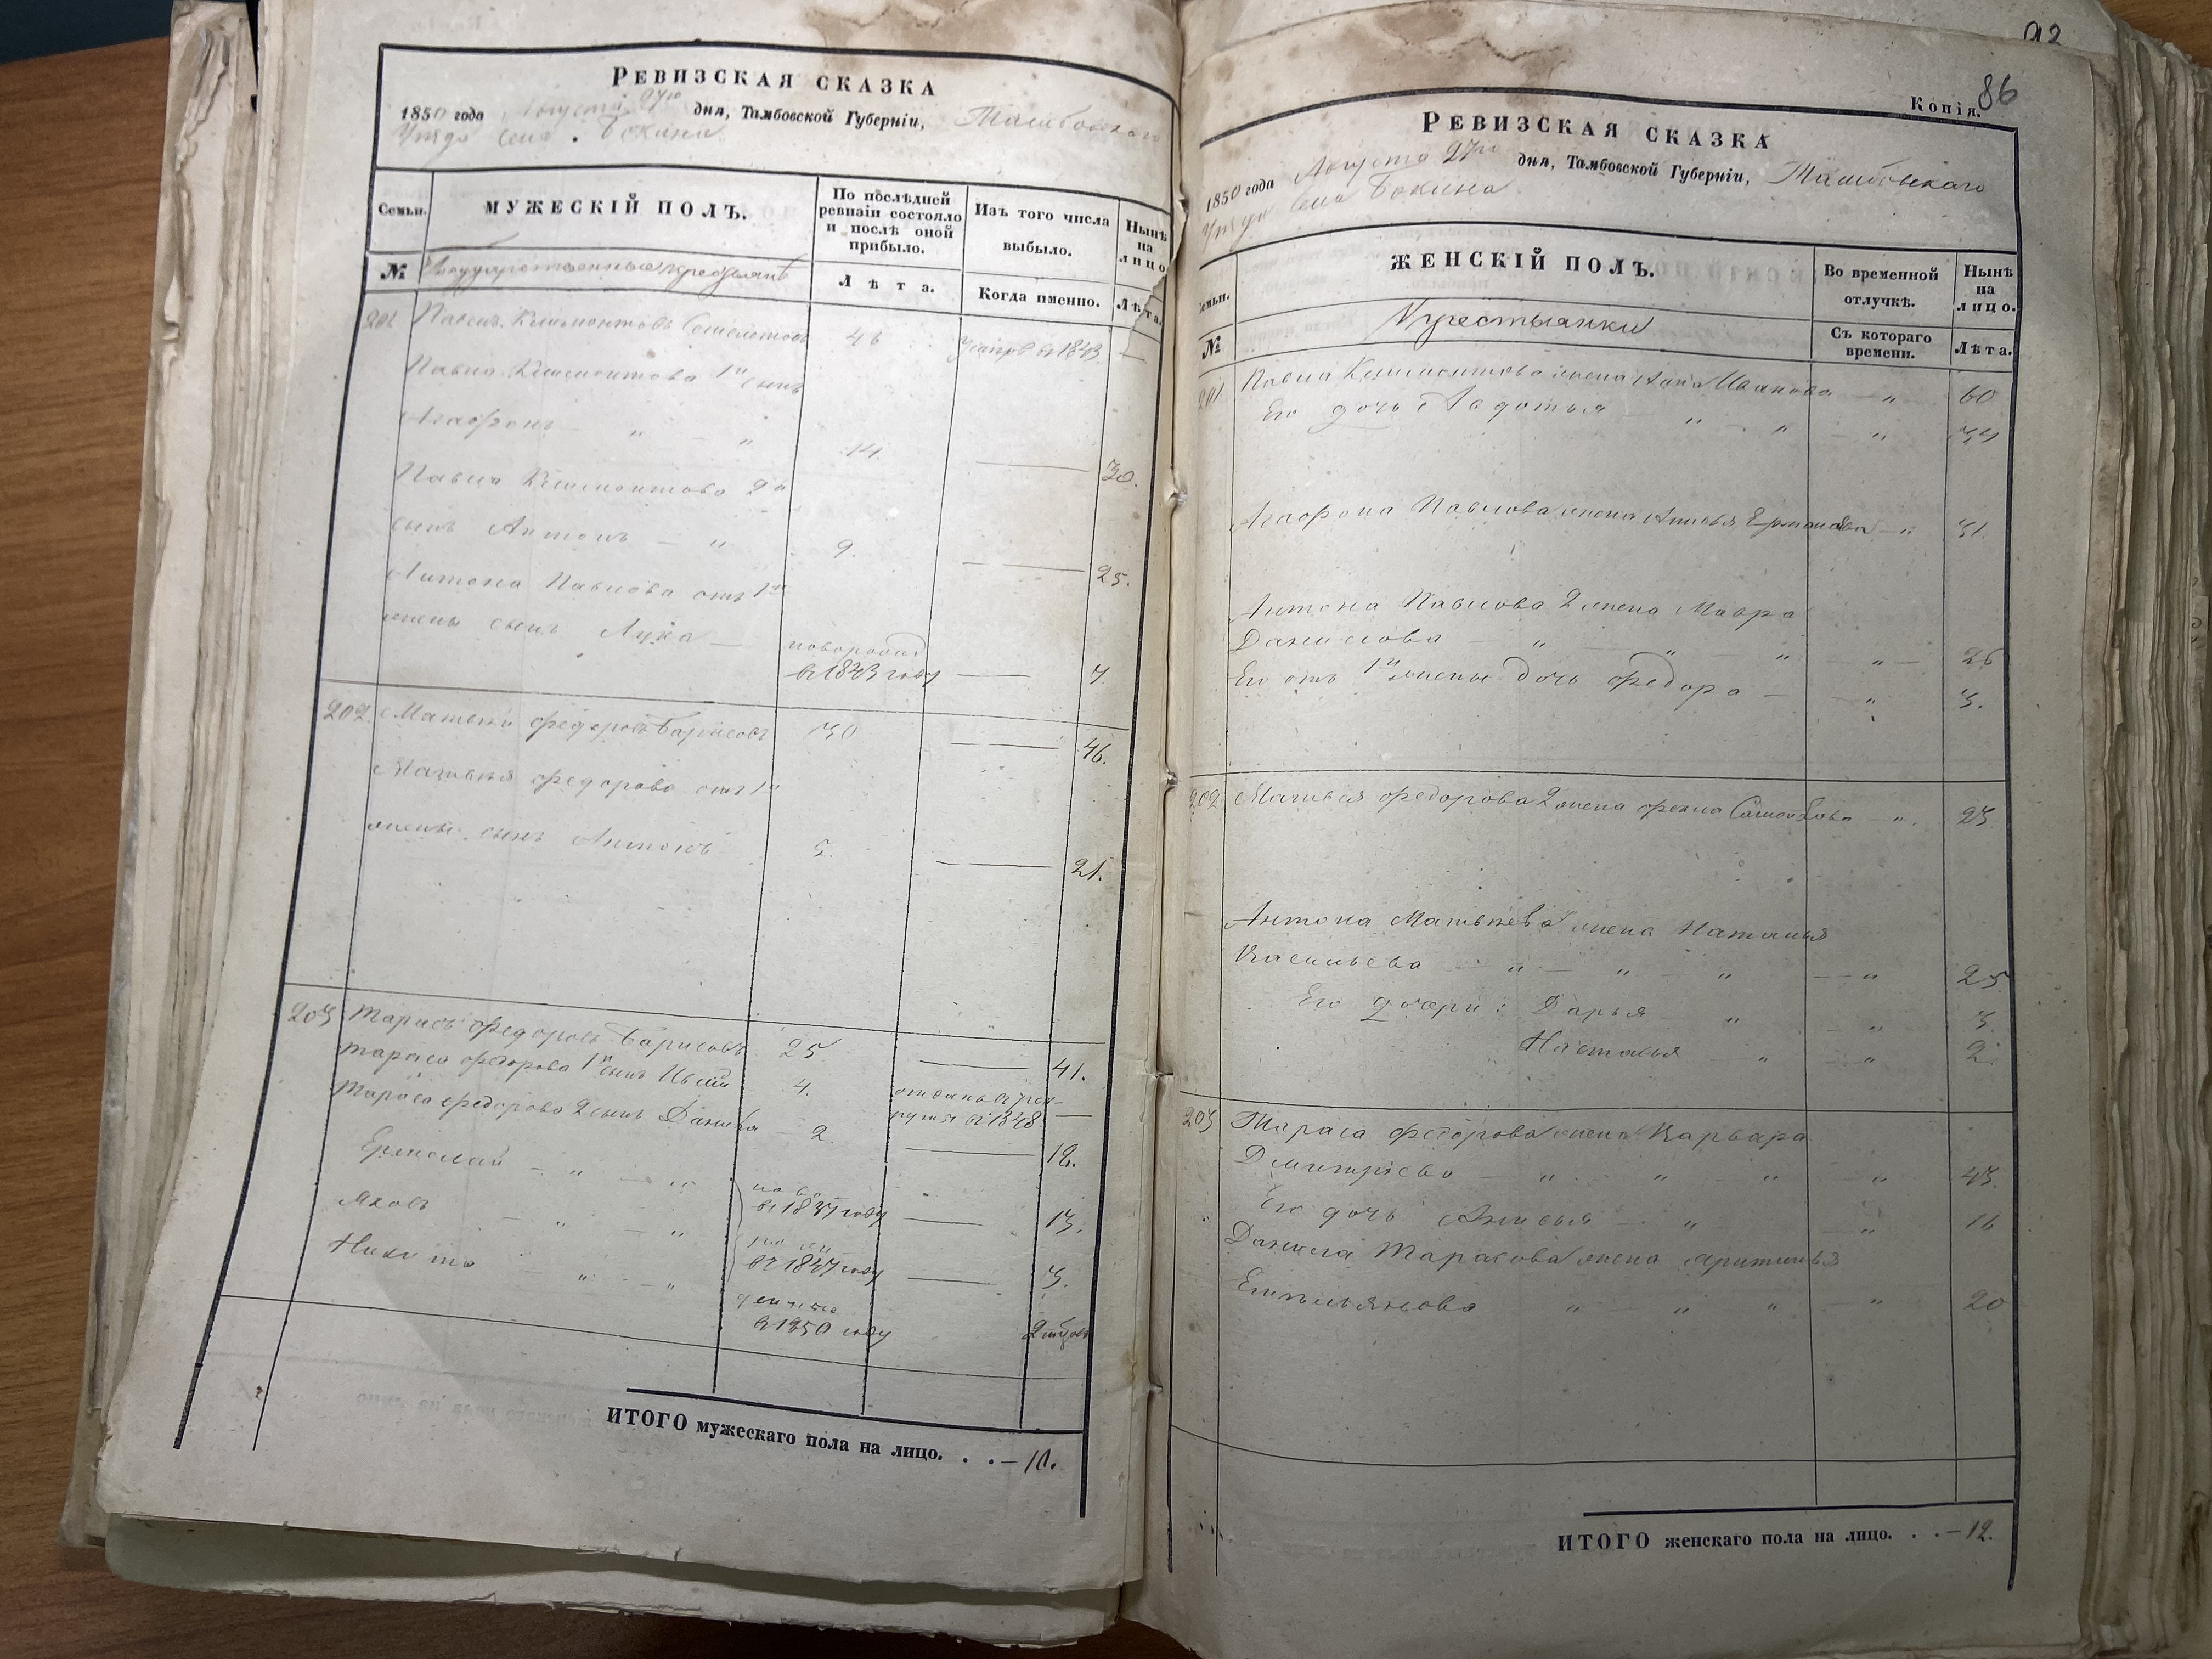 РЕВИЗСКАЯ СКАЗКА
1850 года Августа 27го дня, Тамбовской Губерніи, Тамбовского
Уезда Села Бокина
Семьи. МУЖЕСКІЙ ПОЛЪ. По послѣдней ревизіи состояло и послѣ оной прибыло. Изъ того числа выбыло. Нынѣ на лицо
№ Государственные крестьяне Лѣта. Когда именно. Лѣта.
201 Павелъ Климонтовъ 46 в 1843 —
Павла Климонтова 1й сынъ
Агафонъ — " — " 14 — 30.
Павла Климонтова 2й
сынъ Антонъ — " 9. — 25.
Антона Павлова отъ 1й
жены сынъ Лука — новорожд
в 1843 году — 7
202 Матвей Федоровъ Барисовъ 30 — 46.
Матвея Федорова отъ 1й
жены сынъ Антонъ 5. — 21.
203 Тарасъ Федоровъ Барисовъ 25 — 41.
Тараса Федорова 1й сынъ 4. отданъ в рек-
руты в 1848 —
Тараса Федорова 2 сынъ Данила — 2. — 18.
Ермолай — " — " в 1837 году — 13.
Яковъ — " — " в 1847 году — 3.
Никита — " — "
в 1850 году
ИТОГО мужескаго пола на лицо. . . — 10.
86
Копія.
РЕВИЗСКАЯ СКАЗКА
1850 года Августа 27го дня, Тамбовской Губерніи, Тамбовскаго
Уезда Села Бокина
Семьи. ЖЕНСКІЙ ПОЛЪ. Во временной отлучкѣ. Нынѣ на лицо.
№ Крестьянки Съ котораго времени. Лѣта.
201 Павла Климонтова жена Анна Иванова — " 60
Его дочь Авдотья " — " — " 34
Агафона Павлова жена — " 31.
Антона Павлова 2 жена Мавра
Данилова — " — " " — " — 26
Его отъ 1й жены дочь Федора — " 3.
202 Матвея Федорова 2 жена Фекла — ". 23
Антона Матвеева жена Наталья
Васильева — " — " — " — " 25
Его дочери: Дарья " — " 3.
Настасья — " — " 2.
203 Тараса Федорова жена Варвара
Дмитріева — " " " " 43.
Его дочь Анисья — " — " 16
Данила Тарасова жена
Емельянова " " " " 20
ИТОГО женскаго пола на лицо. . . — 12.